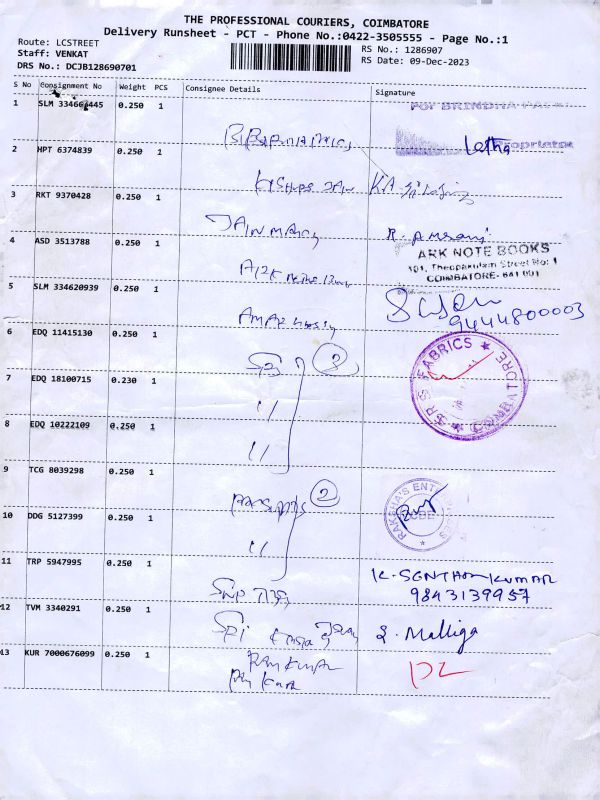 THE PROFESSIONAL COURIERS, COIMBATORE
Delivery Runsheet - PCT - Phone No.:0422-3505555 - Page No.:1
Route: LCSTREET
Staff: VENKAT
DRS No.: DCJB128690701
RS No.: 1286907
RS Date: 09-Dec-2023
S No Consignment No Weight PCS Consignee Details Signature
1 SLM 334663445 0.250 1
For BRINDHA
Proprietor
Latha
2 HPT 6374839 0.250 1
3 RKT 9370428 0.250 1
JAIN
R. AMSani
4 ASD 3513788 0.250 1
ARK NOTE BOOKS
101, Theppakulam Street No: 1
COIMBATORE- 641 001
5 SLM 334620939 0.250 1
9444800003
6 EDQ 11415130 0.250 1
3
SRS FABRICS ★ COIMBATORE ★
7 EDQ 18100715 0.230 1
"
8 EDQ 10222109 0.250 1
"
9 TCG 8039298 0.250 1
2
RAKSHA'S ENT
10 DDG 5127399 0.250 1
"
11 TRP 5947995 0.250 1
K. SENTHOLKUMAR
9843139957
12 TVM 3340291 0.250 1
SPI
S. Malliga
13 KUR 7000676099 0.250 1
RAM KUMAR
DL